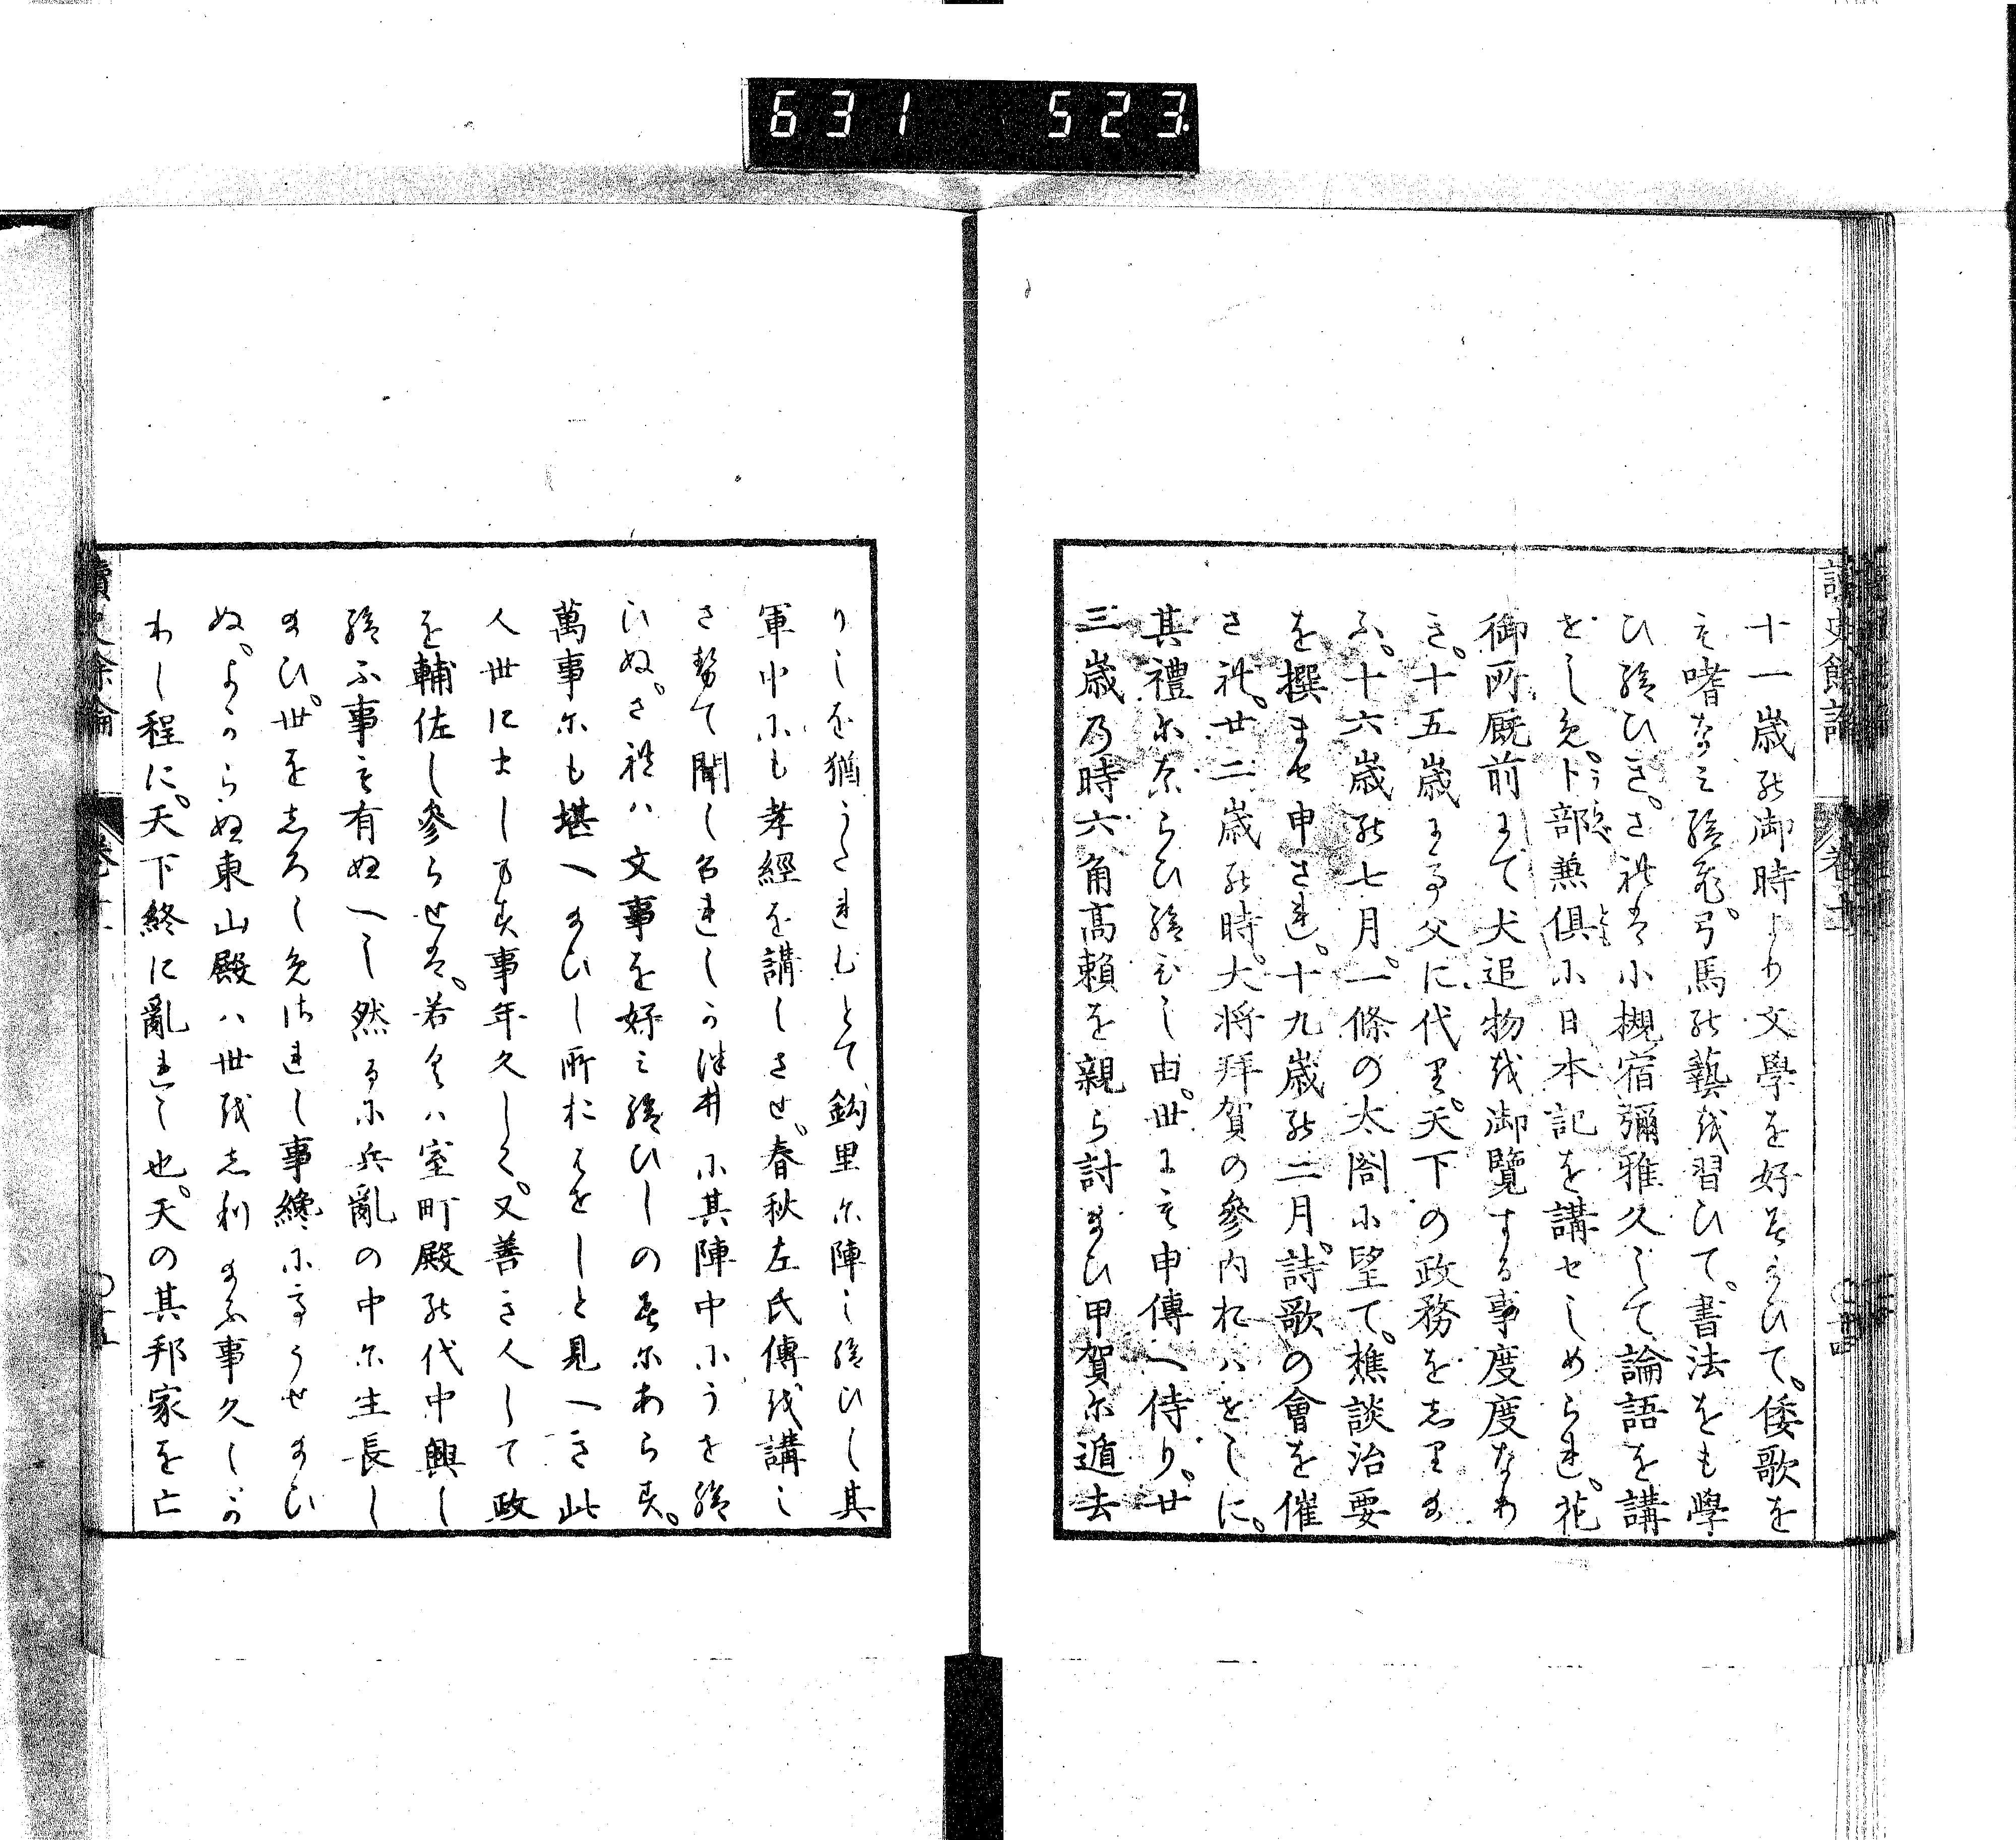 631 523
讀史餘論 卷十一
十一歲の御時より文學を好そみひて。倭歌を
も嗜なミ給飛。弓馬の藝を習ひて。書法をも學
ひ給ひき。されは小槻宿彌雅久して論語を講
をしめ。卜部兼俱に日本記を講セしめられ。花
御所厩前まて犬追物を御覽する事度度なり
き。十五歲よる父に代里。天下の政務を志りま
ふ。十六歲の七月。一條の太閤に望て。樵談治要
を撰ませ申され。十九歲の二月。詩歌の會を催
され。廿二歲の時。大将拜賀の參内れハをしに。
其禮にならひ給ひし由。世にも申傳へ侍り。廿
三歲乃時六角高賴を親ら討まひ甲賀に遁去
りしを猶うたれむとて鈎里に陣し給ひし其
軍中にも孝經を講しさせ。春秋左氏傳を講し
させて聞し召れしか津井に其陣中にうせ給
ひぬ。されハ文事を好ミ給ひしのミにあらす。
萬事にも堪へまひし所おはをしと見へき此
人世にましまサ事年久しく。又善き人して政
を輔佐し參らせは。若くハ室町殿の代中興し
給ふ事も有ぬへし然るに兵亂の中に生長し
まひ。世を志ろしめされし事纔にしてうせまひ
ぬ。よからぬ東山殿ハ世を志りまふ事久しか
りし程に。天下終に亂れし也。天の其邦家を亡
讀史餘論 卷十一